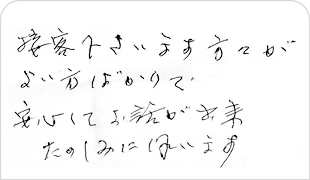 接客下さいます方々が
よい方ばかりで
安心してお話が出来
たのしみに伺います